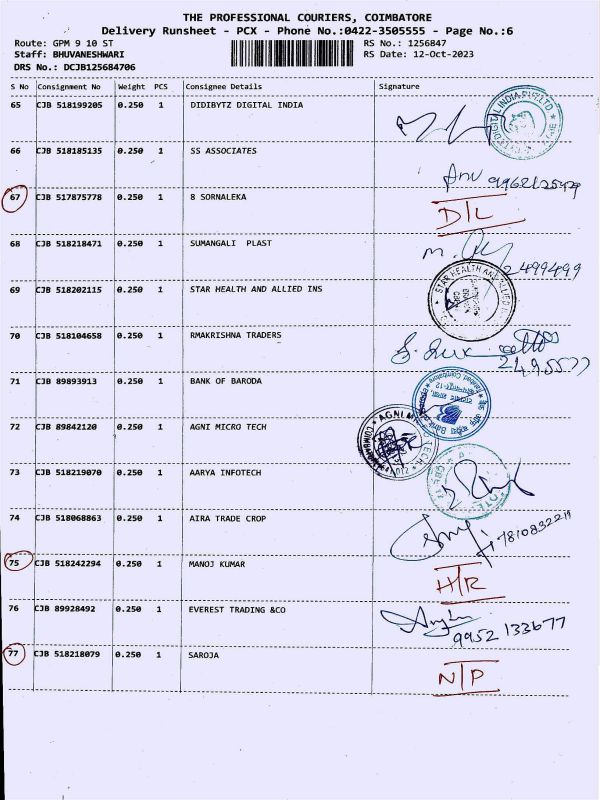 THE PROFESSIONAL COURIERS, COIMBATORE
Delivery Runsheet - PCX - Phone No.:0422-3505555 - Page No.:6
Route: GPM 9 10 ST RS No.: 1256847
Staff: BHUVANESHWARI RS Date: 12-Oct-2023
DRS No.: DCJB125684706
S No Consignment No Weight PCS Consignee Details Signature
65 CJB 518199205 0.250 1 DIDIBYTZ DIGITAL INDIA
66 CJB 518185135 0.250 1 SS ASSOCIATES
Anu 9962125929
67 CJB 517875778 0.250 1 B SORNALEKA
D/L
68 CJB 518218471 0.250 1 SUMANGALI PLAST
2499499
69 CJB 518202115 0.250 1 STAR HEALTH AND ALLIED INS
STAR HEALTH AND ALLIED
70 CJB 518104658 0.250 1 RMAKRISHNA TRADERS
2495577
71 CJB 89893913 0.250 1 BANK OF BARODA
72 CJB 89842120 0.250 1 AGNI MICRO TECH
73 CJB 518219070 0.250 1 AARYA INFOTECH
74 CJB 518068863 0.250 1 AIRA TRADE CROP
7810832211
75 CJB 518242294 0.250 1 MANOJ KUMAR
H/R
76 CJB 89928492 0.250 1 EVEREST TRADING &CO
9952 133677
77 CJB 518218079 0.250 1 SAROJA
N/P